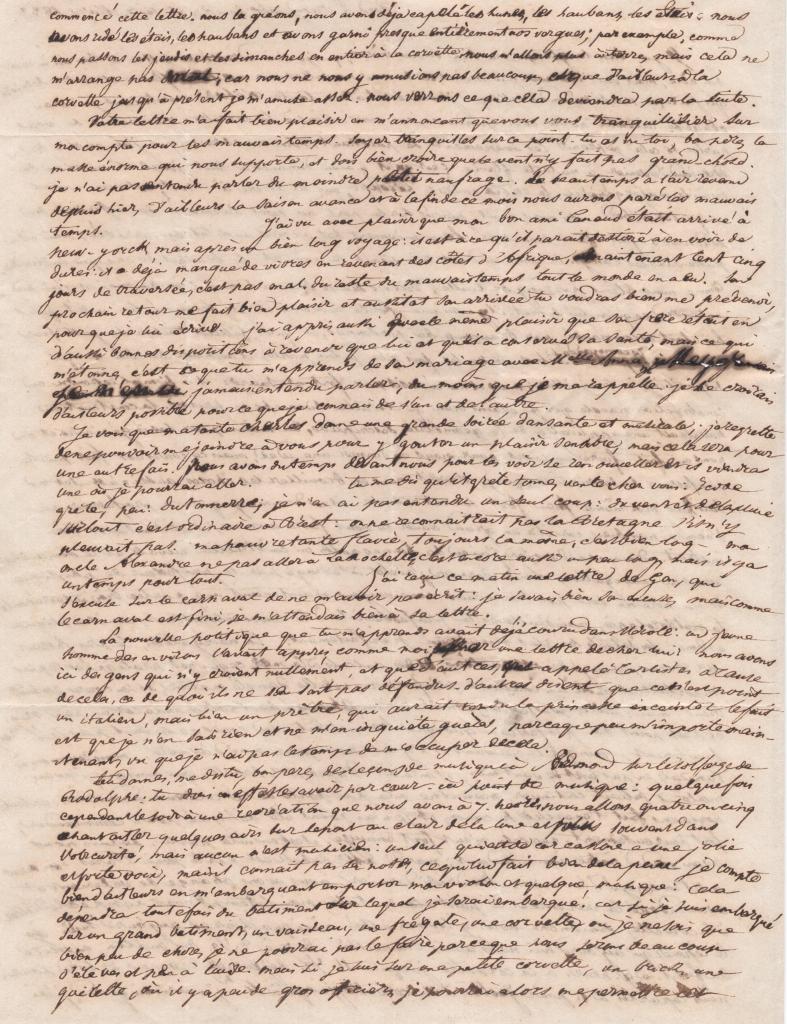 commencé cette lettre. nous la gréons, nous avons déjà capelé les hunes, les haubans, les étais : nous
avons ridé les étais, les haubans et avons garni presque entièrement nos vergues ; par exemple, comme
nous passons les jeudis et les dimanches en entier à la corvette, nous n'allons plus à terre, mais cela ne
m'arrange pas mal, car nous ne nous y amusions pas beaucoup, et que d'ailleurs à la
corvette jusqu'à présent je m'amuse assez. nous verrons ce que cela deviendra par la suite.
Votre lettre m'a fait bien plaisir en m'annonçant que vous vous tranquillisier sur
mon compte pour les mauvais temps. soyez tranquilles sur ce point. tu as vu toi, bon père, la
masse énorme qui nous supporte, et dois bien croire que le vent n'y fait pas grand chose.
je n'ai pas entendu parler du moindre petit naufrage. le beau temps a l'air revenu
depuis hier, d'ailleurs la saison avance et à la fin de ce mois nous aurons paré les mauvais
temps. J'ai vu avec plaisir que mon bon ami Canaud était arrivé à
new-yorck mais après un bien long voyage : il est à ce qu'il parait destiné à en voir de
dures : il a déjà manqué de vivres en revenant des côtes d'Afrique, maintenant cent cinq
jours de traversée, c'est pas mal. du reste du mauvais temps tout le monde en a eu. son
prochain retour me fait bien plaisir et aussitôt son arrivée tu voudras bien me prévenir,
pour que je lui écrive. j'ai appris aussi avec le même plaisir que son frère était en
d'aussi bonnes dispositions à revenir que lui et qu'il a conservé sa santé, mais ce qui
m'étonne, c'est ce que tu m'apprends de son mariage avec Melle
jamais entendu parler, du moins que je me rappelle. je ne crois
d'ailleurs possible pour ce que je connais de l'un et de l'autre.
Je vois que ma tante Charles donne une grande soirée dansante et musicale ; je regrette
de ne pouvoir me joindre à vous pour y goûter un plaisir semblable, mais cela sera pour
une autre fois. nous avons du temps devant nous pour les voir se renouveller et il viendra
une où je pourrai aller. tu me dis qu'il grêle, tonne, vente chez vous : ici de
grêle, peu : du tonnerre, je n'en ai pas entendu un seul coup : du vent et de la pluie
surtout c'est ordinaire à Brest : on ne reconnaîtrait pas la Bretagne s'il n'y
pleuvait pas. ma pauvre tante flavie, toujours la même, c'est bien long. mon
oncle Alexandre ne pas aller à La Rochelle, c'est encore aussi un peu long, mais il y a
un temps pour tout. J'ai reçu ce matin une lettre de Gon, qui
s'excuse sur le carnaval de ne m'avoir pas écrit : je savais bien son excuse, mais comme
le carnaval est fini, je m'attendais bien à sa lettre.
La nouvelle politique que tu m'apprends avait déjà couru dans l'école : un jeune
homme des environs l'avait appris comme moi par une lettre de chez lui : nous avons
ici des gens qui n'y croient nullement, et que d'autres ont appelé Carlistes à cause
de cela, ce de quoi ils ne se sont pas défendus. d'autres disent que ce n'est point
un italien, mais bien un prêtre, qui aurait rendu la princesse enceinte. le fait
est que je n'en sais rien et ne m'en inquiète guères, parce que peu m'importe main-
tenant, vu que je n'ai pas le temps de m'occuper de cela.
tu donnes, me dis tu, bon père, des leçons de musique à Edmond sur le solfège de
Rodolphe : tu dois en effet les savoir par coeur. ici point de musique : quelquefois
cependant le soir à une récréation que nous avons à 7 heures, nous allons quatre ou cinq
chantonner quelques airs sur le pont au clair de la lune et plus souvent dans
l'obscurité, mais aucun n'est musicien : un seul a une jolie
et forte voix, mais il ne connait pas la note, ce qui lui fait bien de la peine. je compte
bien d'ailleurs en m'embarquant emporter mon violon et quelque musique : cela
dépendra toutefois du bâtiment sur lequel je serai embarqué. car si je suis embarqué
sur un grand bâtiment, un vaisseau, une frégate, une corvette, où je ne sois que
bien peu de chose, je ne pourrai pas le faire parce que nous serons beaucoup
d'élèves et peu à l'aide. mais si je suis sur une petite corvette, un brick, une
goëlette, où il y a peu de gros officiers, je pourrai alors me permettre cet